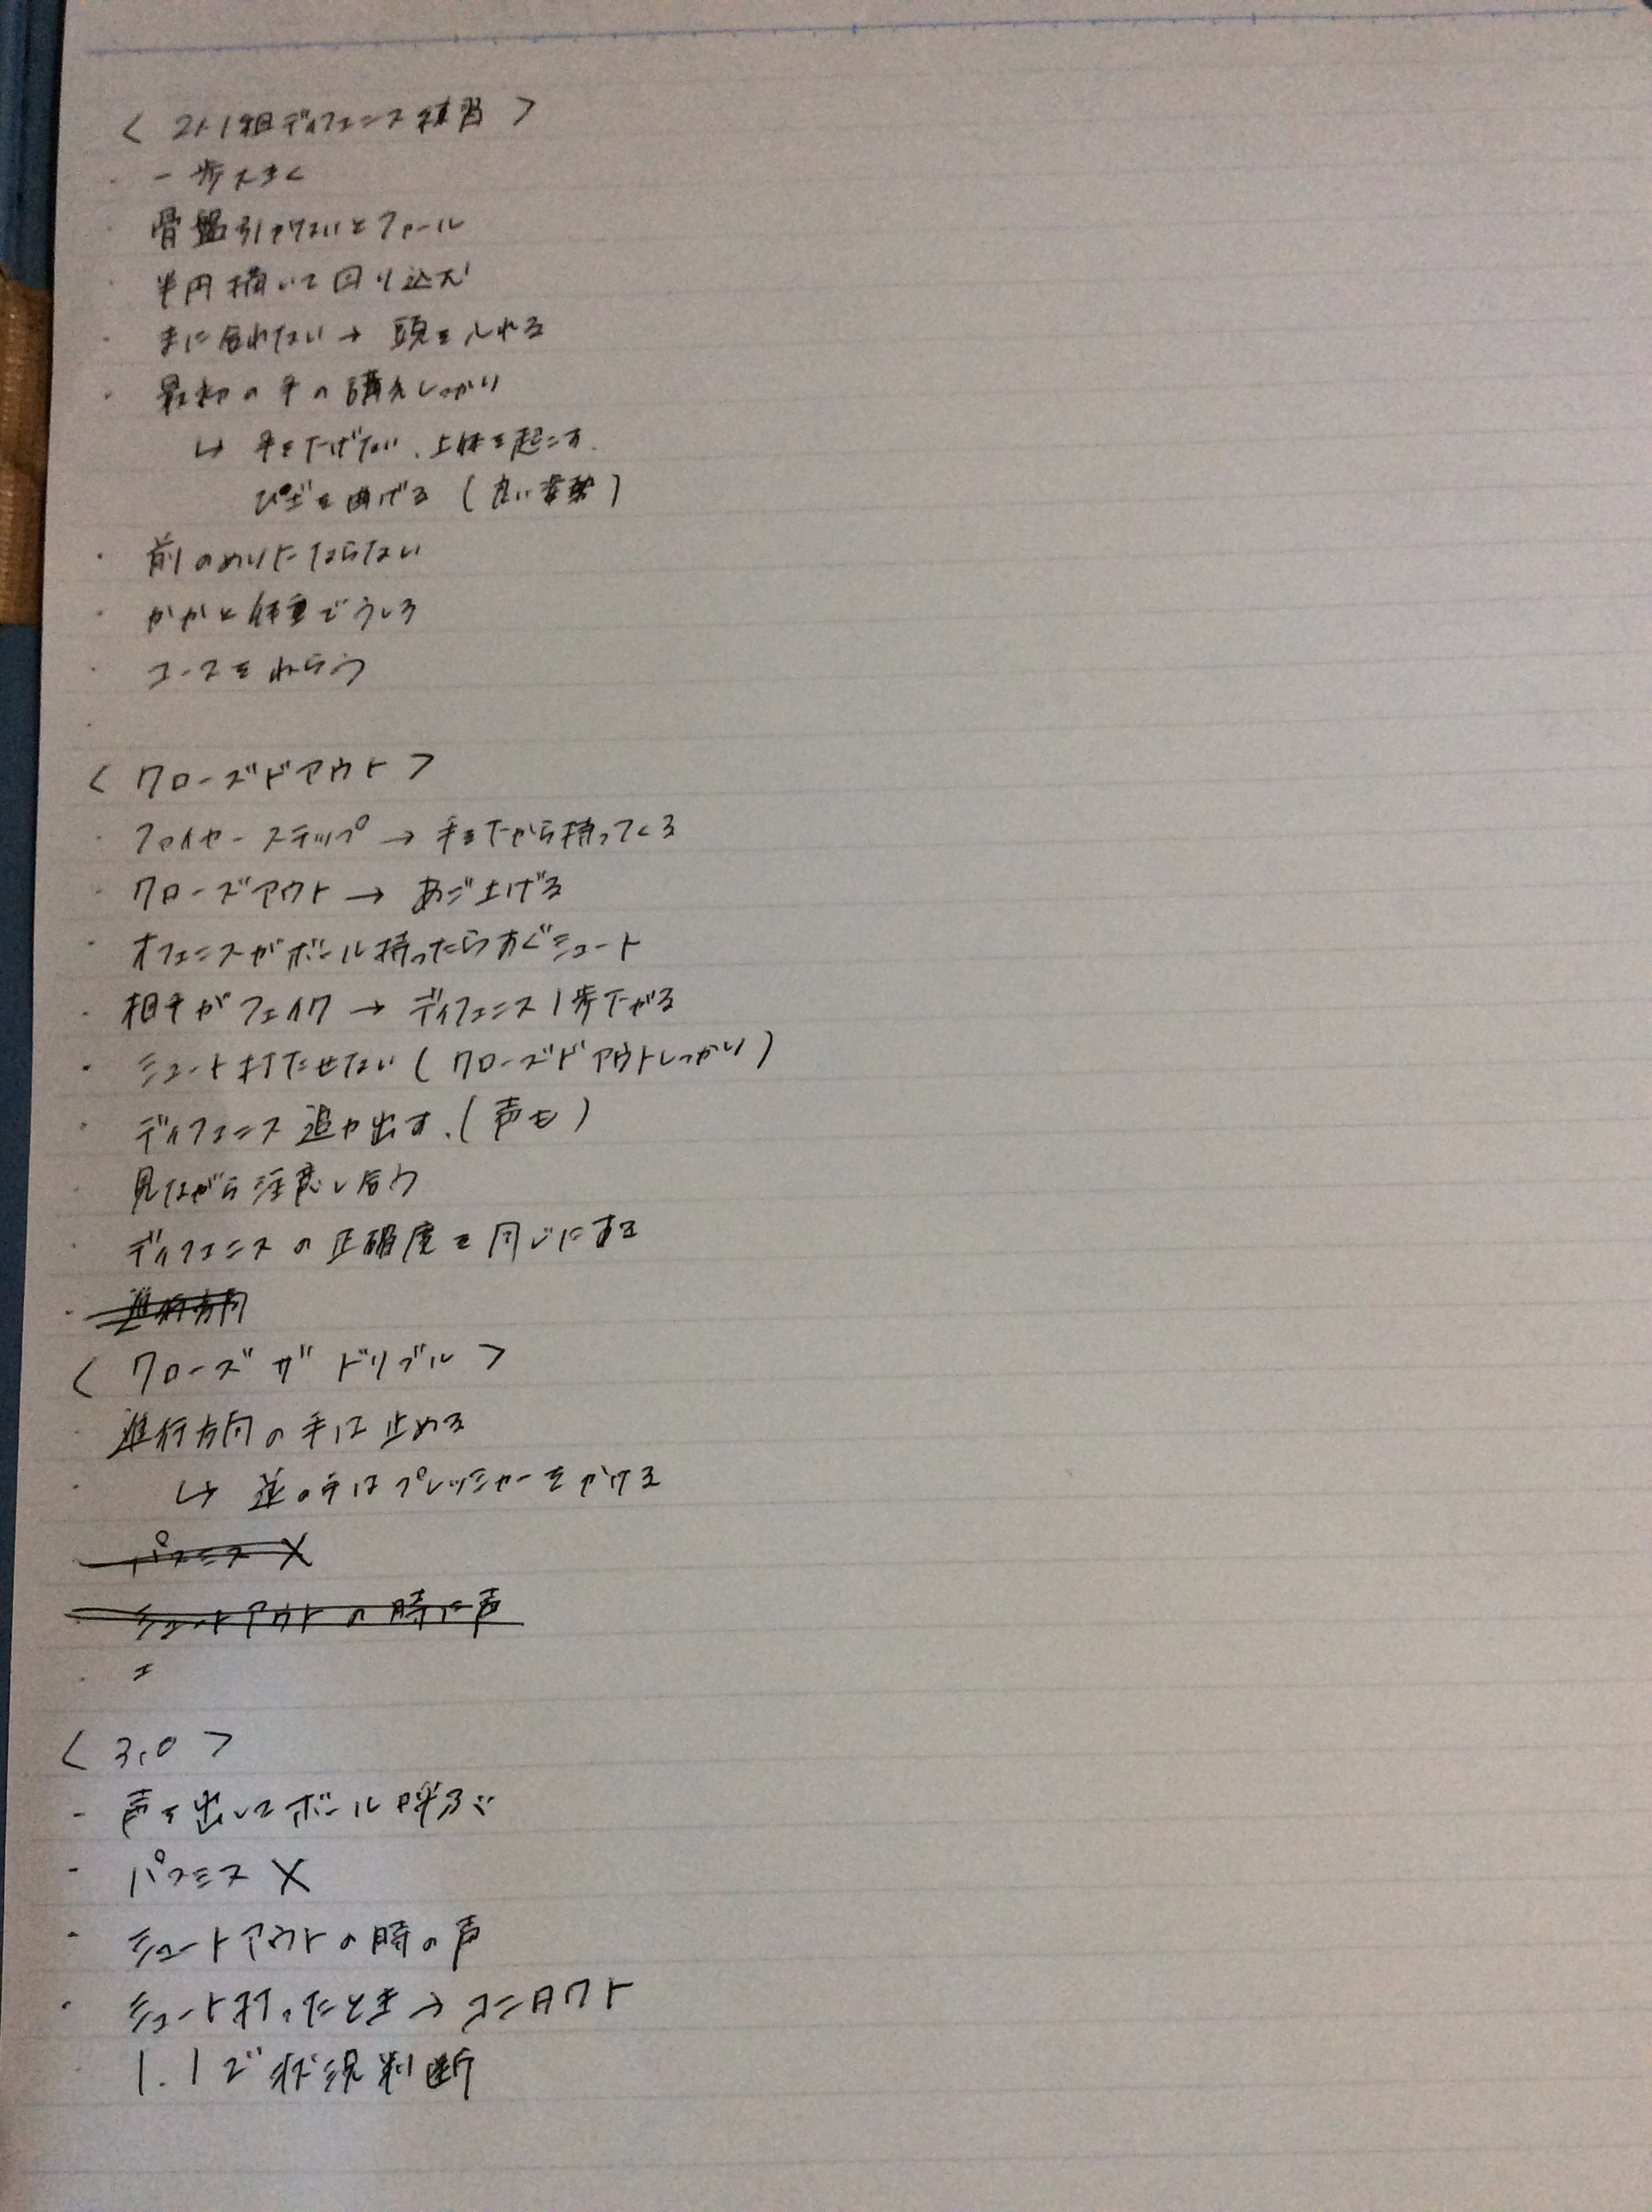 < 2人1組ディフェンス練習 >
・一歩大きく
骨盤引かないとファール
・半円描いて回り込む
・まに合わない→頭を入れる
・最初の手の構えしっかり
↳ 手を下げない、上体を起こす.
ひざを曲げる (丸い姿勢)
・前のめりにならない
・かかと体重でうしろ
・コースをねらう
・
< クローズドアウト >
・ファイヤーステップ → 手を下から持ってくる
・クローズアウト → あご上げる
・オフェンスがボール持ったらすぐシュート
・相手がフェイク → ディフェンス1歩下がる
・シュート打たせない (クローズドアウトしっかり)
・ディフェンス追い出す.(声も)
・見ながら注意し合う
・ディフェンスの正確度を同じにする
・進行方向
< クローズ ザ ドリブル >
・進行方向の手は止める
・↳ 逆の手はプレッシャーをかける
・パスミス X
・シュートアウトの時に声
・エ
< 3.0 >
・声を出してボール呼ぶ
・パスミス X
・シュートアウトの時の声
・シュート打ったとき→コンタクト
・1.1で状況判断